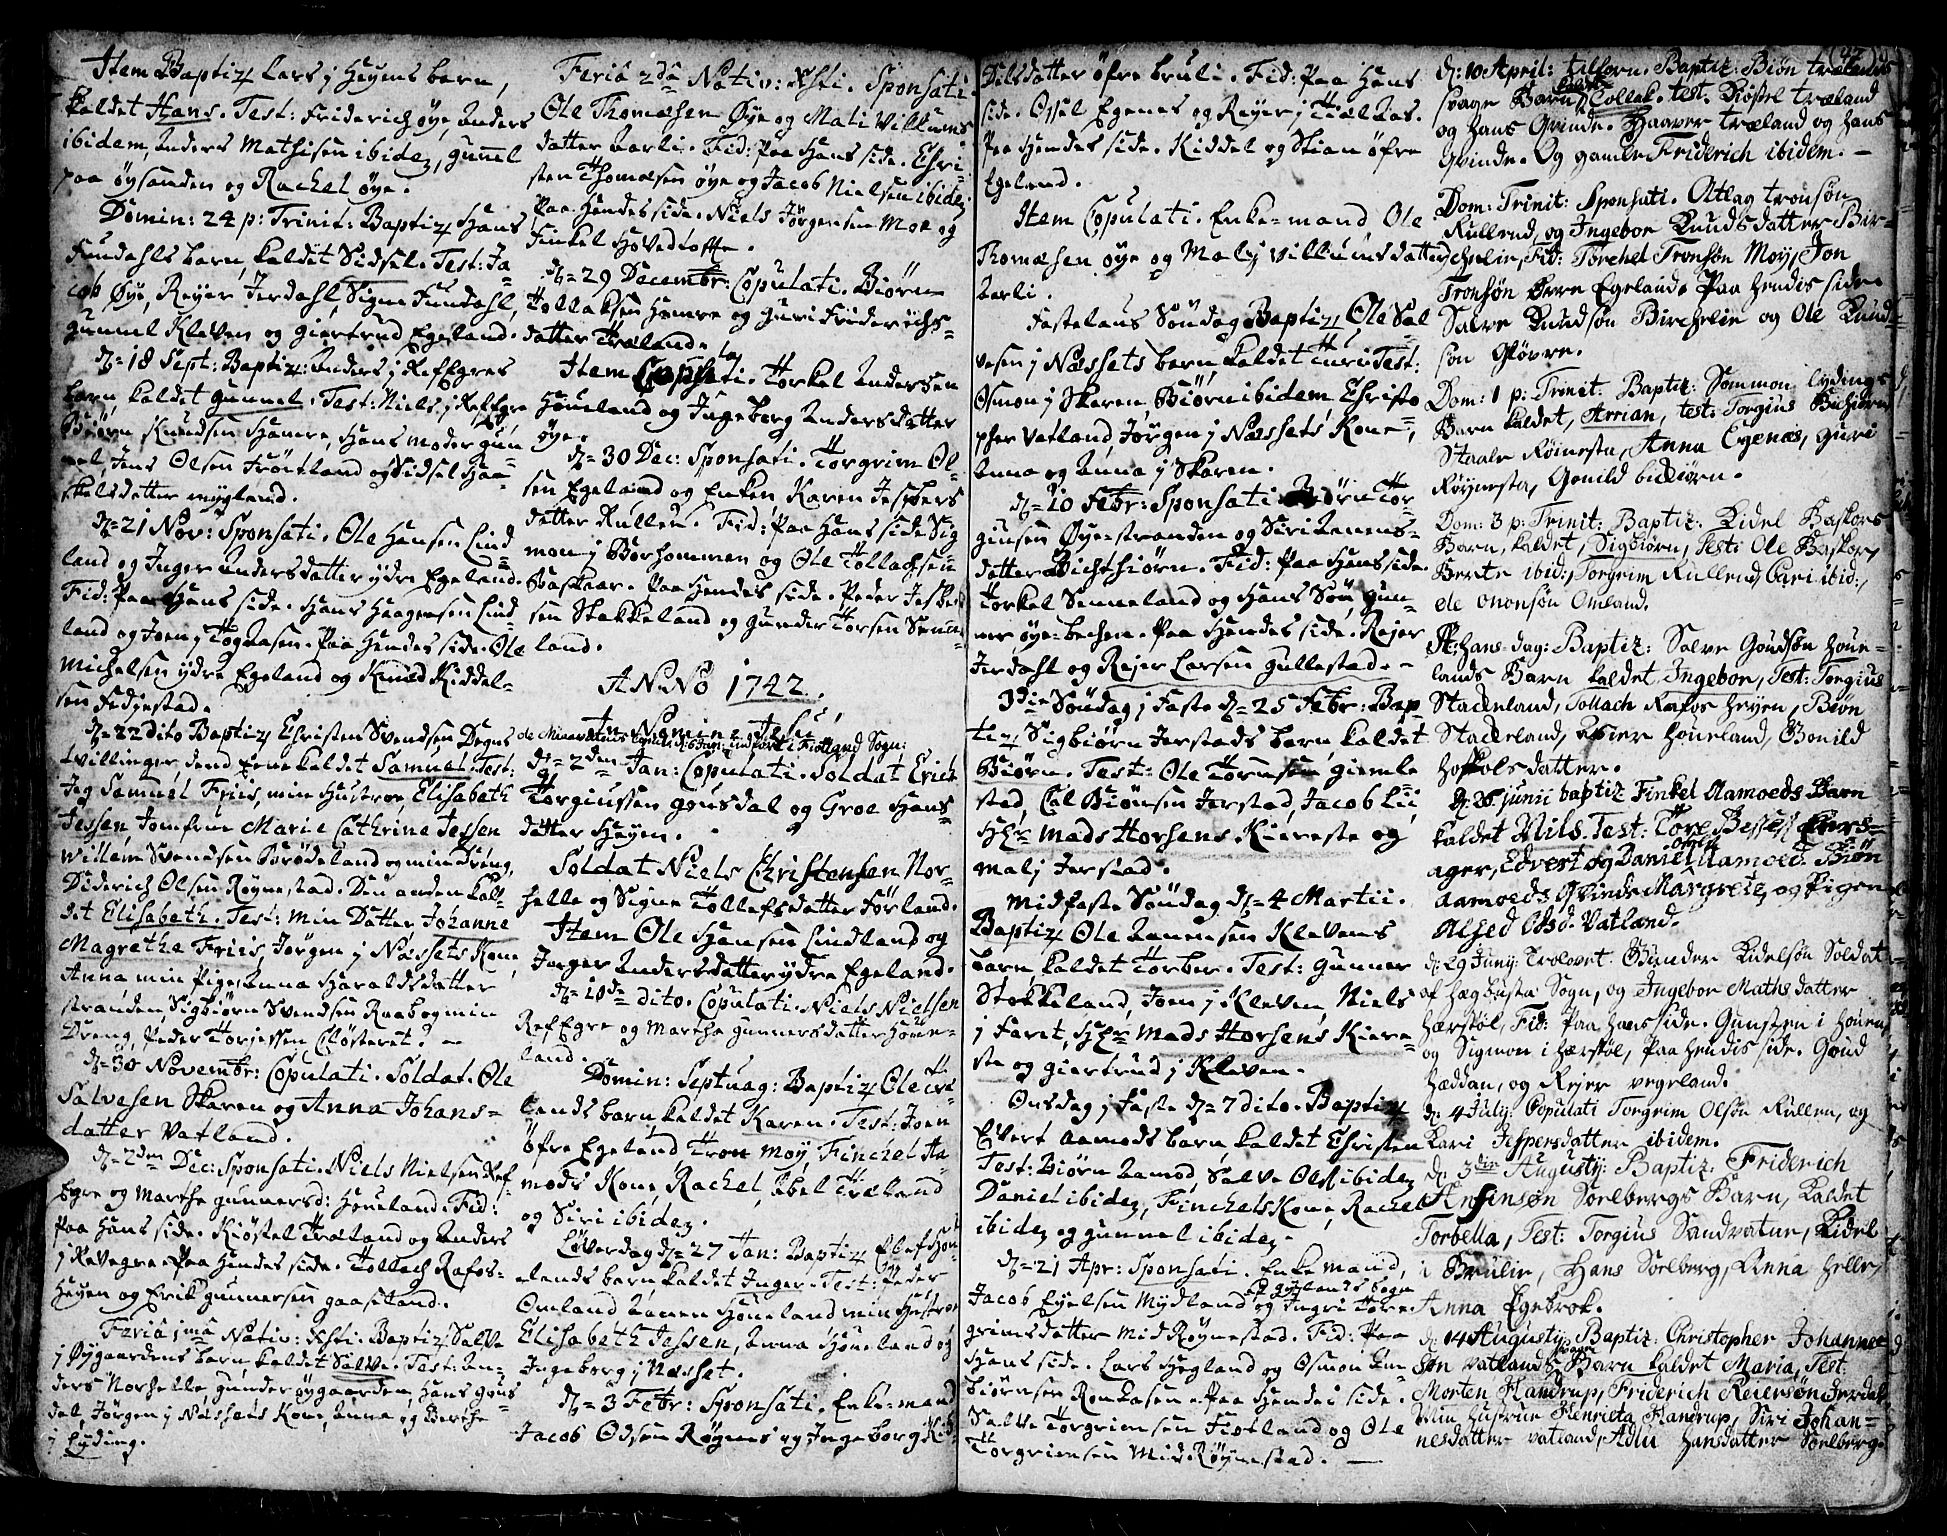 Item Baptiz Lars i Heyens barn,
kaldet Hans. Test: Friderich øye, Anders
ibidem, Anders Mathisen ibidem, Gunnel
paa øysanden og Rachel øye.
Domin: 24 p: Trinit: Baptiz Hans
Fundahls barn kaldet Sidsel. Test: Ja-
cob Øye, Reyer Jerdahl, Signe Fundahl,
Gunnel Kleven og giertrud Egeland.
d= 18 Sept: Baptiz: Anders i Refkgres
barn kaldet gunnel. Test: Niels i Refkgre
Biørn Knudsen Hamre, Hans moder gun-
nel, Jens Olsen Trøitland og Sidsel Haa-
skelsdatter mygland.
d= 21 Nov: Sponsati. Ole Hansen Lind-
land og Inger Andersdatter ydre Egeland.
Fid: Paa Hans side. Hans Haagensen Lind-
land og Joen Paa Hendes side. Ole
Michelsen ydre Egeland og Knud Kiddel-
sen Fedgestad.
d= 22 dito Baptiz Christen Svendsen Degns
tvillinger dend Ene kaldet Samuel. Test:
Jeg Samuel Friis, min Hustroe Elisabeth
Jessen Jomfrue Marie Cathrine Jessen
Willem Svendsen og min dreng
Diderich Olsen Røynestad. Den anden kal-
det Elisabeth. Test: min Datter Johanne
Magrethe Friis, Jørgen i Næssets Kone
Anna min Pige, Anna Haraldsdatter
stranden, Sigbiørn Svendsen Raab og min
Dreng, Peder Torjessen Cløsteret.
d= 30 Novembr: Copulati. Soldat. Ole
Salvesen Skaren og Anna Johans-
datter Vatland.
d= 2den Dec: Sponsati. Niels Nielsen Ref-
Egre og Marthe gunnersd: Houeland. Fid:
Paa Hans side. Kiøstel Træland og Anders
i Refegre. Paa Hendes side. Tollach Rafos-
Heyen og Erik gunnersen gaaseland.
Feria 1ma Nativ: Xsti. Baptiz Salve
i Øygaardens barn kaldet Salve. Test: An-
ders Norhelle, gunder øygaarden, Hans gous-
dal, Jørgen i Næssets Kone, Anna og Berthe
i Lyding.
Feria 2da Nativ: Xsti. Sponsati.
Ole Thomæsen Øye og Mali Villums
datter Aarli. Fid: Paa Hans side. Chri-
sten Thomæsen øye og Jacob Nielsen ibidem
Paa Hendes side. Niels Jørgensen Moe og
Finkel
d= 29 Decembr: Copulati. Biørn
Tollaksen Hamre og Guri Friderichs-
datter Træland.
Item Copulati. Torkel Andersen
Houeland og Ingeborg Andersdatter
øye.
d= 30 Dec: Sponsati. Torgrim Ol-
sen Egeland og Enken Karen Jespers
datter Rullen. Fid: Paa Hans side Sig-
mon i Borhommen og Ole Tollachsen
Baskaar. Paa Hendes side. Peder Jesper-
sen Stakkeland og Gunder Torsen Senne-
land.
ANNO 1742.
In Nomine Jesu,
d= 2den Jan: Copulati. Soldat Erich
Torgiussen gousdal og Groe Hans-
datter Heyen.
Soldat Niels Christensen Nor-
helle og Signe Tollefsdatter Førland.
Item Ole Hansen Lindland og
Inger Andersdatter ydre Egeland.
d= 10de dito. Copulati. Niels Nielsen
RefEgre og Marthe gunnersdatter Houe-
land.
Domin: Septuag: Baptiz Ole Træ-
lands barn kaldet Karen. Test: Joen
øfre Egeland, Tron Moy, Finchel Aa-
mods Kone, Rachel, Abel Træland
og Siri ibidem.
Løverdag d= 27 Jan: Baptiz Hou-
elands barn kaldet Inger. Test: Peder
Omland Aanen Houeland min Hustroe
Elisabeth Jessen, Anna Houeland og
Ingeborg i Næsset.
d= 3 Febr: Sponsati. Enke-mand
Jacob Olsen Røynes og Ingeborg Kid-
dilsdatter øfre bruli. Fid: Paa Hans
side. Ossel Egenes og Reyer i
Paa Hendes side. Kiddel og Stian øfre
Egeland.
Item Copulati. Enke-mand Ole
Thomæsen øye og Mali Villumsdatter
Aarli.
Fastelaus Søndag Baptiz Ole Sal-
vesen i Næssets barn kaldet Turi Test:
Osmon i Skaren, Biørn ibidem Christo
pher Vatland Jørgen i Næssets Kone,
Anna og Anna i Skaren.
d= 20 Febr: Sponsati Biørn Tor
giusen Øyestranden og Siri Aanens-
datter Bichiørn. Fid: Paa Hans side.
Torkel Senneland og Hans Søn, gun-
ner øye-bechen. Paa Hendes side. Rejer
Jerdahl og Rejer Larsen Gullestad.
3die Søndag i Faste d= 25 Febr: Bap-
tiz Sigbiørn Jerstads barn kaldet
Biørn. Test: Ole Tørresen Giemle
stad, Carl Biønsen Jerstad, Jacob Lii
Hr Mads Horsens Kiereste og
Mali Jerstad.
Midfaste Søndag d= 4 Martii.
Baptiz Ole Aanensen Klevens
barn kaldet Torber. Test: Gunner
Stakkeland, Joen i Kleven, Niels
i Faret, Hr Mads Horsens Kiere-
ste og giertrud i Kleven.
Onsdag i Faste d= 7 dito. Baptiz
Evert Aamods barn kaldet Christen
Test: Biørn Aamod, Salve Olss ibidem
Daniel ibidem, Finchels Kone, Rachel
ibidem og gunnel ibidem.
d= 21 Apr: Sponsati. Enke mand,
Jacob Eyelsen Mydland og Ingri Tor-
grimsdatter Mid Røynestad. Fid: Paa
Hans side. Lars Hegland og Osmon
biørnsen Rom Paa Hendes side.
Salve Torgrimsen Fiotland og Ole
Torgrimsen Mid Røynestad.
d: 10 April: tilforn. Baptiz: Biøn Trælands
svage Barn, kaldet Tollak. test. Kiøstel Træland
og hans Qvinde. Haaver Træland og hans
Qvinde. Og gamle Friderich ibidem.
Dom: Trinit: Sponsati. Attlag Tronsøn
Rullend, og Ingebor Knudsdatter Bir-
chelie, Fid: Torchel Tronsøn Moy, Jon
Tronsøn Øvre Egeland. Paa hendis side
Salve Knudsøn Birchelie og Ole Knud-
søn
Dom: 1 p: Trinit: Baptiz: Sommon Lydings
Barn kaldet, Arrian, test: Torgius Bichiørn
Staale Røinesta, Anna Egenæs, Guri
Røynesta, Gunild bichiørn.
Dom: 3 p: Trinit: Baptiz: Kidel Baskors
Barn, kaldet, Sigbiørn, Test: Ole Baskor,
Berte ibid:, Torgrim Rullend, Cari ibid:,
ole ononsøn Omland.
St: Hans-dag: Baptiz: Salve Goudsøn Houe-
lands Barn kaldet Ingebor, Test: Torgius
Stackeland, Tollach Rafos Heyen, Biøn
Stackeland, Asier Houeland, Gonild
Hoskolsdatter.
d: 25 junii baptiz Finkel Aamoeds Barn
kaldet Nils. Test: Tore
ager, Edvert og Daniel Aamoed. Biøn
Aamoeds Qvinde Margrete, og Pigen
Vatland.
d: 29 Juny: Trolovet. Gunder Kidelsøn Soldat
af Hægbusta Sogn, og Ingebor Mathsdatter
Hærstøl, Fid: Paa hans side. Gunsten i Houen,
og Sigmon i Hærstøl, Paa hendis side. Goud
Hæddan, og Rejer Vegeland.
d: 4 July: Copulati Torgrim Olsøn Rullen, og
Kari Jespersdatter ibidem.
d: 3die Augusty: Baptiz. Friderich
Ansensøn Sorlbergs Barn, kaldet
Torbella, Test: Torgius Sandvatne, Kidel
i Brulie, Hans Sorlberg, Anna Helle,
Anna Egebrok.
d: 14 Augusty: Baptiz: Christopher Johannes
søn Vatlands svage Barn kaldet Maria, Test.
Morten Handrup, Friderich Reiersøn Jerdal
Min Hustrue Henrieta Handrup, Siri Johan-
nesdatter Vatland, Adlu Hansdatter Sorlberg.